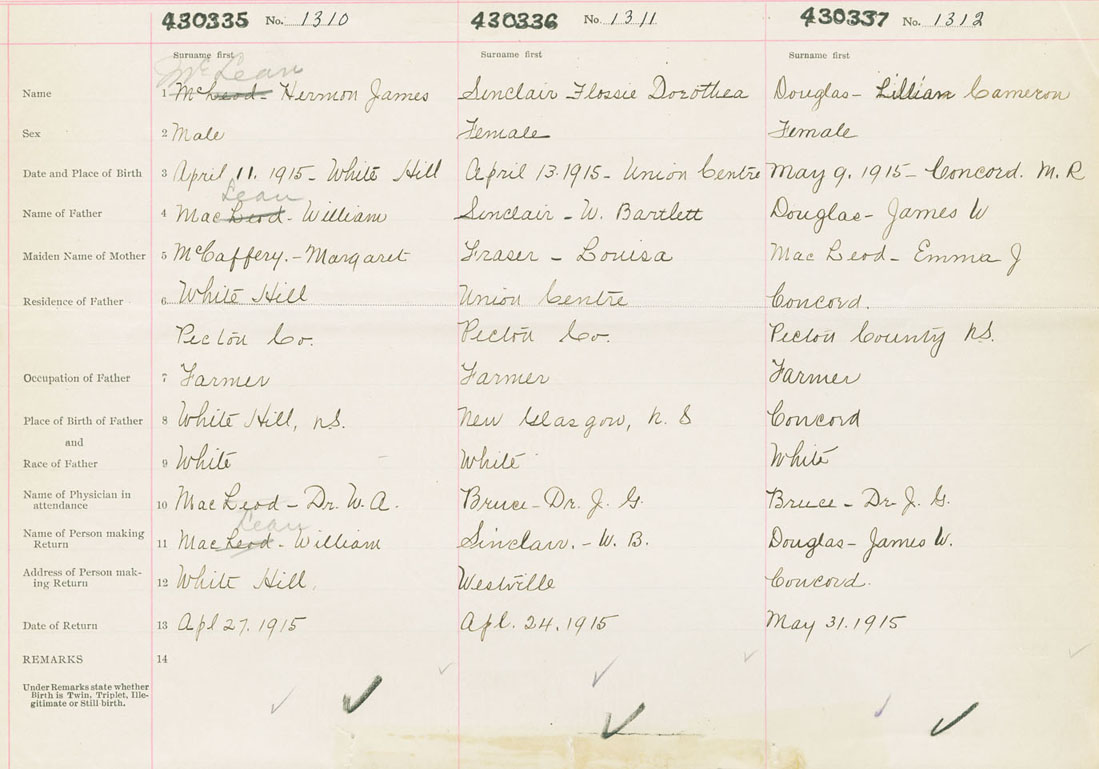 430335 No. 1310 430336 No. 1311 430337 No. 1312
Surname first Surname first Surname first
McLean
Name 1 McLeod- Hermon James Sinclair Flossie Dorothea Douglas- Lillian Cameron
Sex 2 Male Female Female
Date and Place of Birth 3 April 11. 1915- White Hill April 13.1915- Union Centre May 9. 1915- Concord. M.R
Lean
Name of Father 4 MacLeod- William Sinclair - W. Bartlett Douglas- James W
Maiden Name of Mother 5 McCaffery.- Margaret Fraser - Louisa MacLeod- Emma J
Residence of Father 6 White Hill Union Centre Concord.
Pictou Co. Pictou Co. Pictou County N.S.
Occupation of Father 7 Farmer Farmer Farmer
Place of Birth of Father 8 White Hill, N.S. New Glasgow, N.S Concord
and
Race of Father 9 White White White
Name of Physician in
attendance 10 MacLeod- Dr. W. A. Bruce- Dr. J. G. Bruce- Dr. J. G.
Lean
Name of Person making
Return 11 MacLeod- William Sinclair.- W. B. Douglas- James W.
Address of Person mak-
ing Return 12 White Hill. Westville Concord.
Date of Return 13 Apl 27. 1915 Apl. 24. 1915 May 31. 1915
REMARKS 14
Under Remarks state whether
Birth is Twin, Triplet, Ille-
gitimate or Still birth.